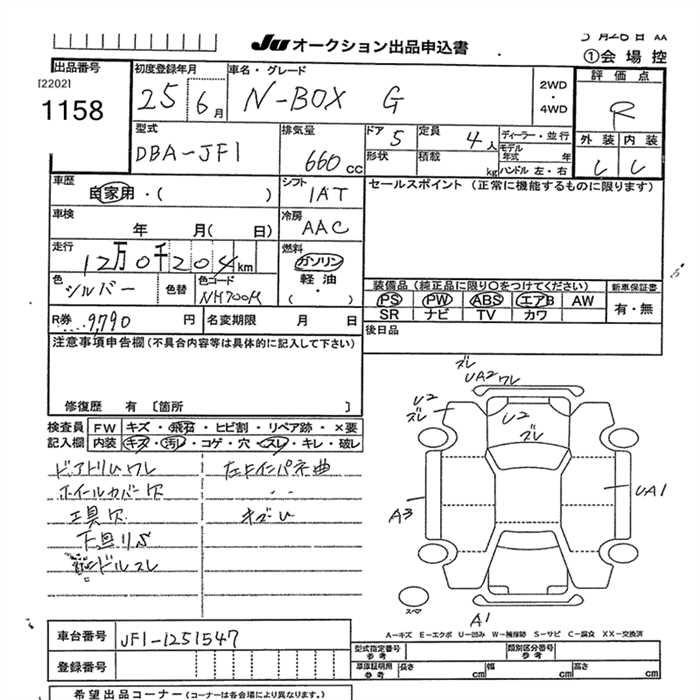 JU オークション出品申込書
①会場控
出品番号
[2202]
1158
初度登録年月
25 6月
車名・グレード
N-BOX G
2WD・4WD
評価点
R
外装 内装
型式
DBA-JF1
排気量
660cc
ドア 5
定員 4人
形状
積載 kg
ディーラー・並行
モデル年式 年
ハンドル 左・右
車歴
自家用・( )
シフト
IAT
セールスポイント (正常に機能するものに限ります)
車検
年 月( 日)
冷房
AAC
走行
12万0千204km
燃料
ガソリン
軽油
( ・ )
色
シルバー
色替
色コード
NH700M
装備品(純正品に限り○をつけてください)
PS PW ABS エアB AW
SR ナビ TV カワ
新車保証書
有・無
R券 9,790円
名変期限 月 日
後日品
注意事項申告欄(不具合内容等は具体的に記入して下さい)
修復歴 有〔箇所 〕
検査員記入欄
FW キズ・飛石・ヒビ割・リペア跡・×要
内装 キズ・汚レ・コゲ・穴・スレ・キレ・破レ
ホイールカバー欠
工具欠
下回りS
左F インパネ曲
ズレ
UA2 ワレ
U2
ズレ
U2
ズレ
A3
UA1
A1
スペア
A-キズ E-エクボ U-凹み W-補修跡 S-サビ C-腐食 XX-交換済
車台番号
JF1-1251547
登録番号
型式指定番号 参考
類別区分番号 参考
車庫証明用 参考
長さ cm
幅 cm
高さ cm
希望出品コーナー(コーナーは各会場により異なります。)